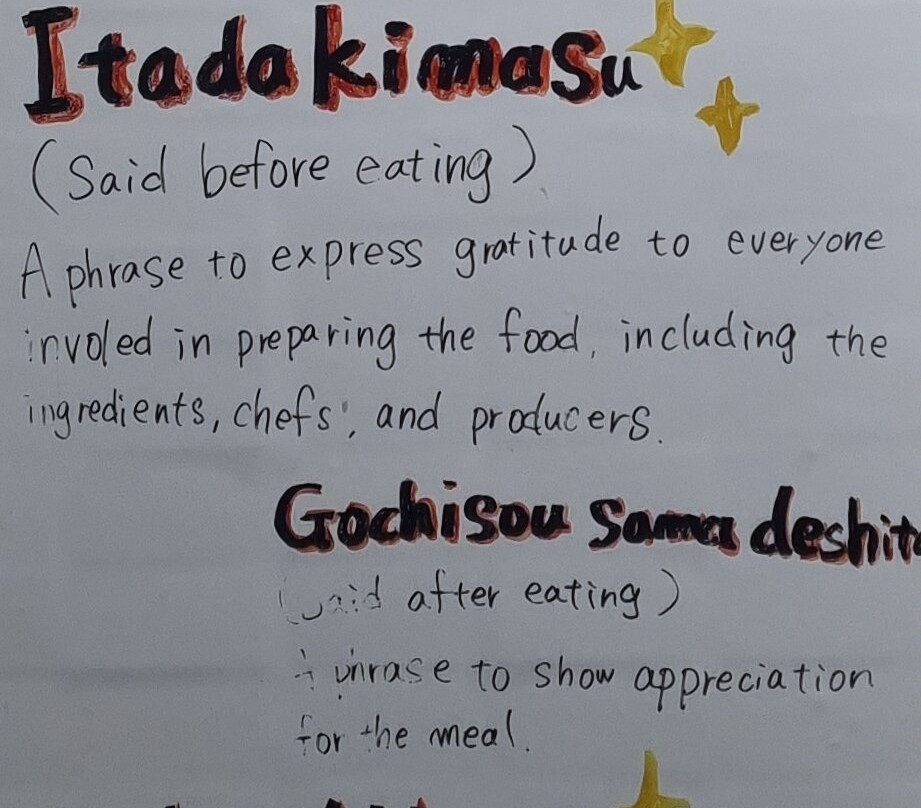 Itadakimasu
(Said before eating)
A phrase to express gratitude to everyone
involed in preparing the food, including the
ingredients, chefs, and producers.
Gochisou sama deshit
(Said after eating)
A phrase to show appreciation
for the meal.